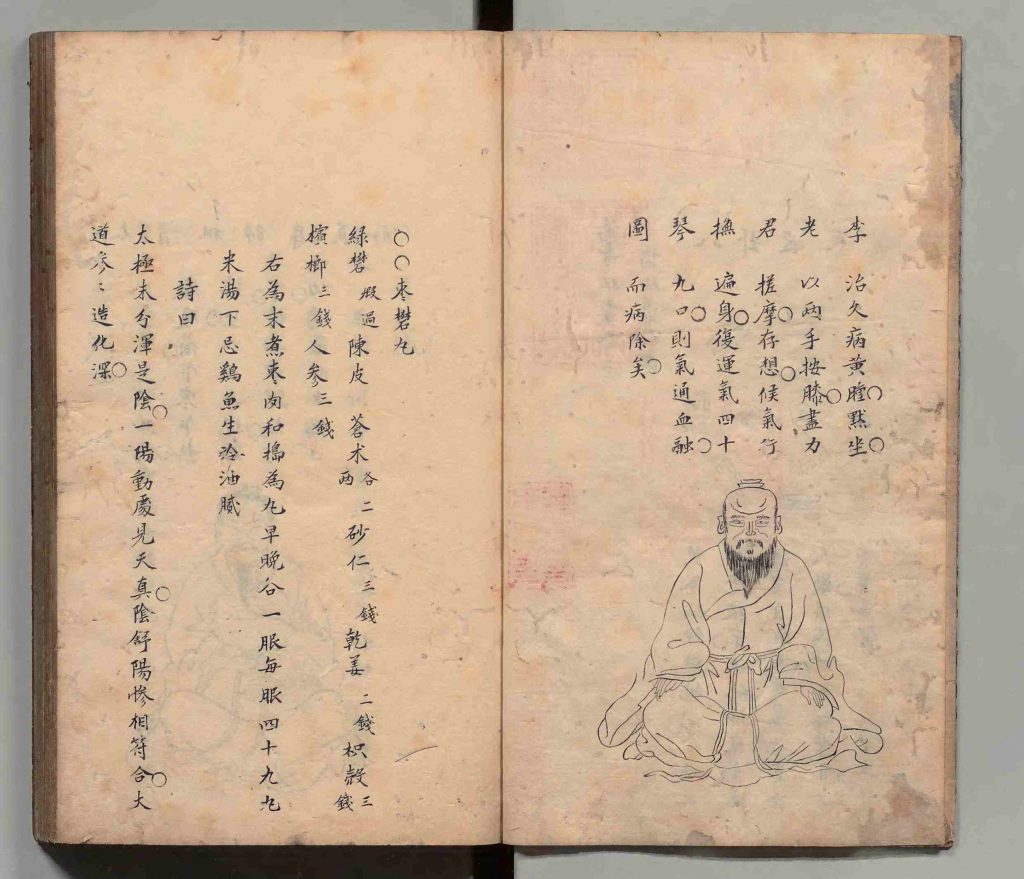 李 治久病黃腫。默坐。
老 以兩手按膝。盡力
君 搓摩。存想。候氣行
撫 遍身。復運氣四十
琴 九口。則氣通血融。
圖 而病除矣。
○○棗礬丸
綠礬煆過陳皮 蒼朮各二兩砂仁三錢乾姜二錢枳殼三錢
檳榔三錢人參三錢
右為末煮棗肉和搗為丸早晚各一服每服四十九丸
米湯下忌鷄魚生冷油膩
詩曰
太極未分渾是陰。一陽動處見天真。陰舒陽慘相符合。大
道參〻造化深。